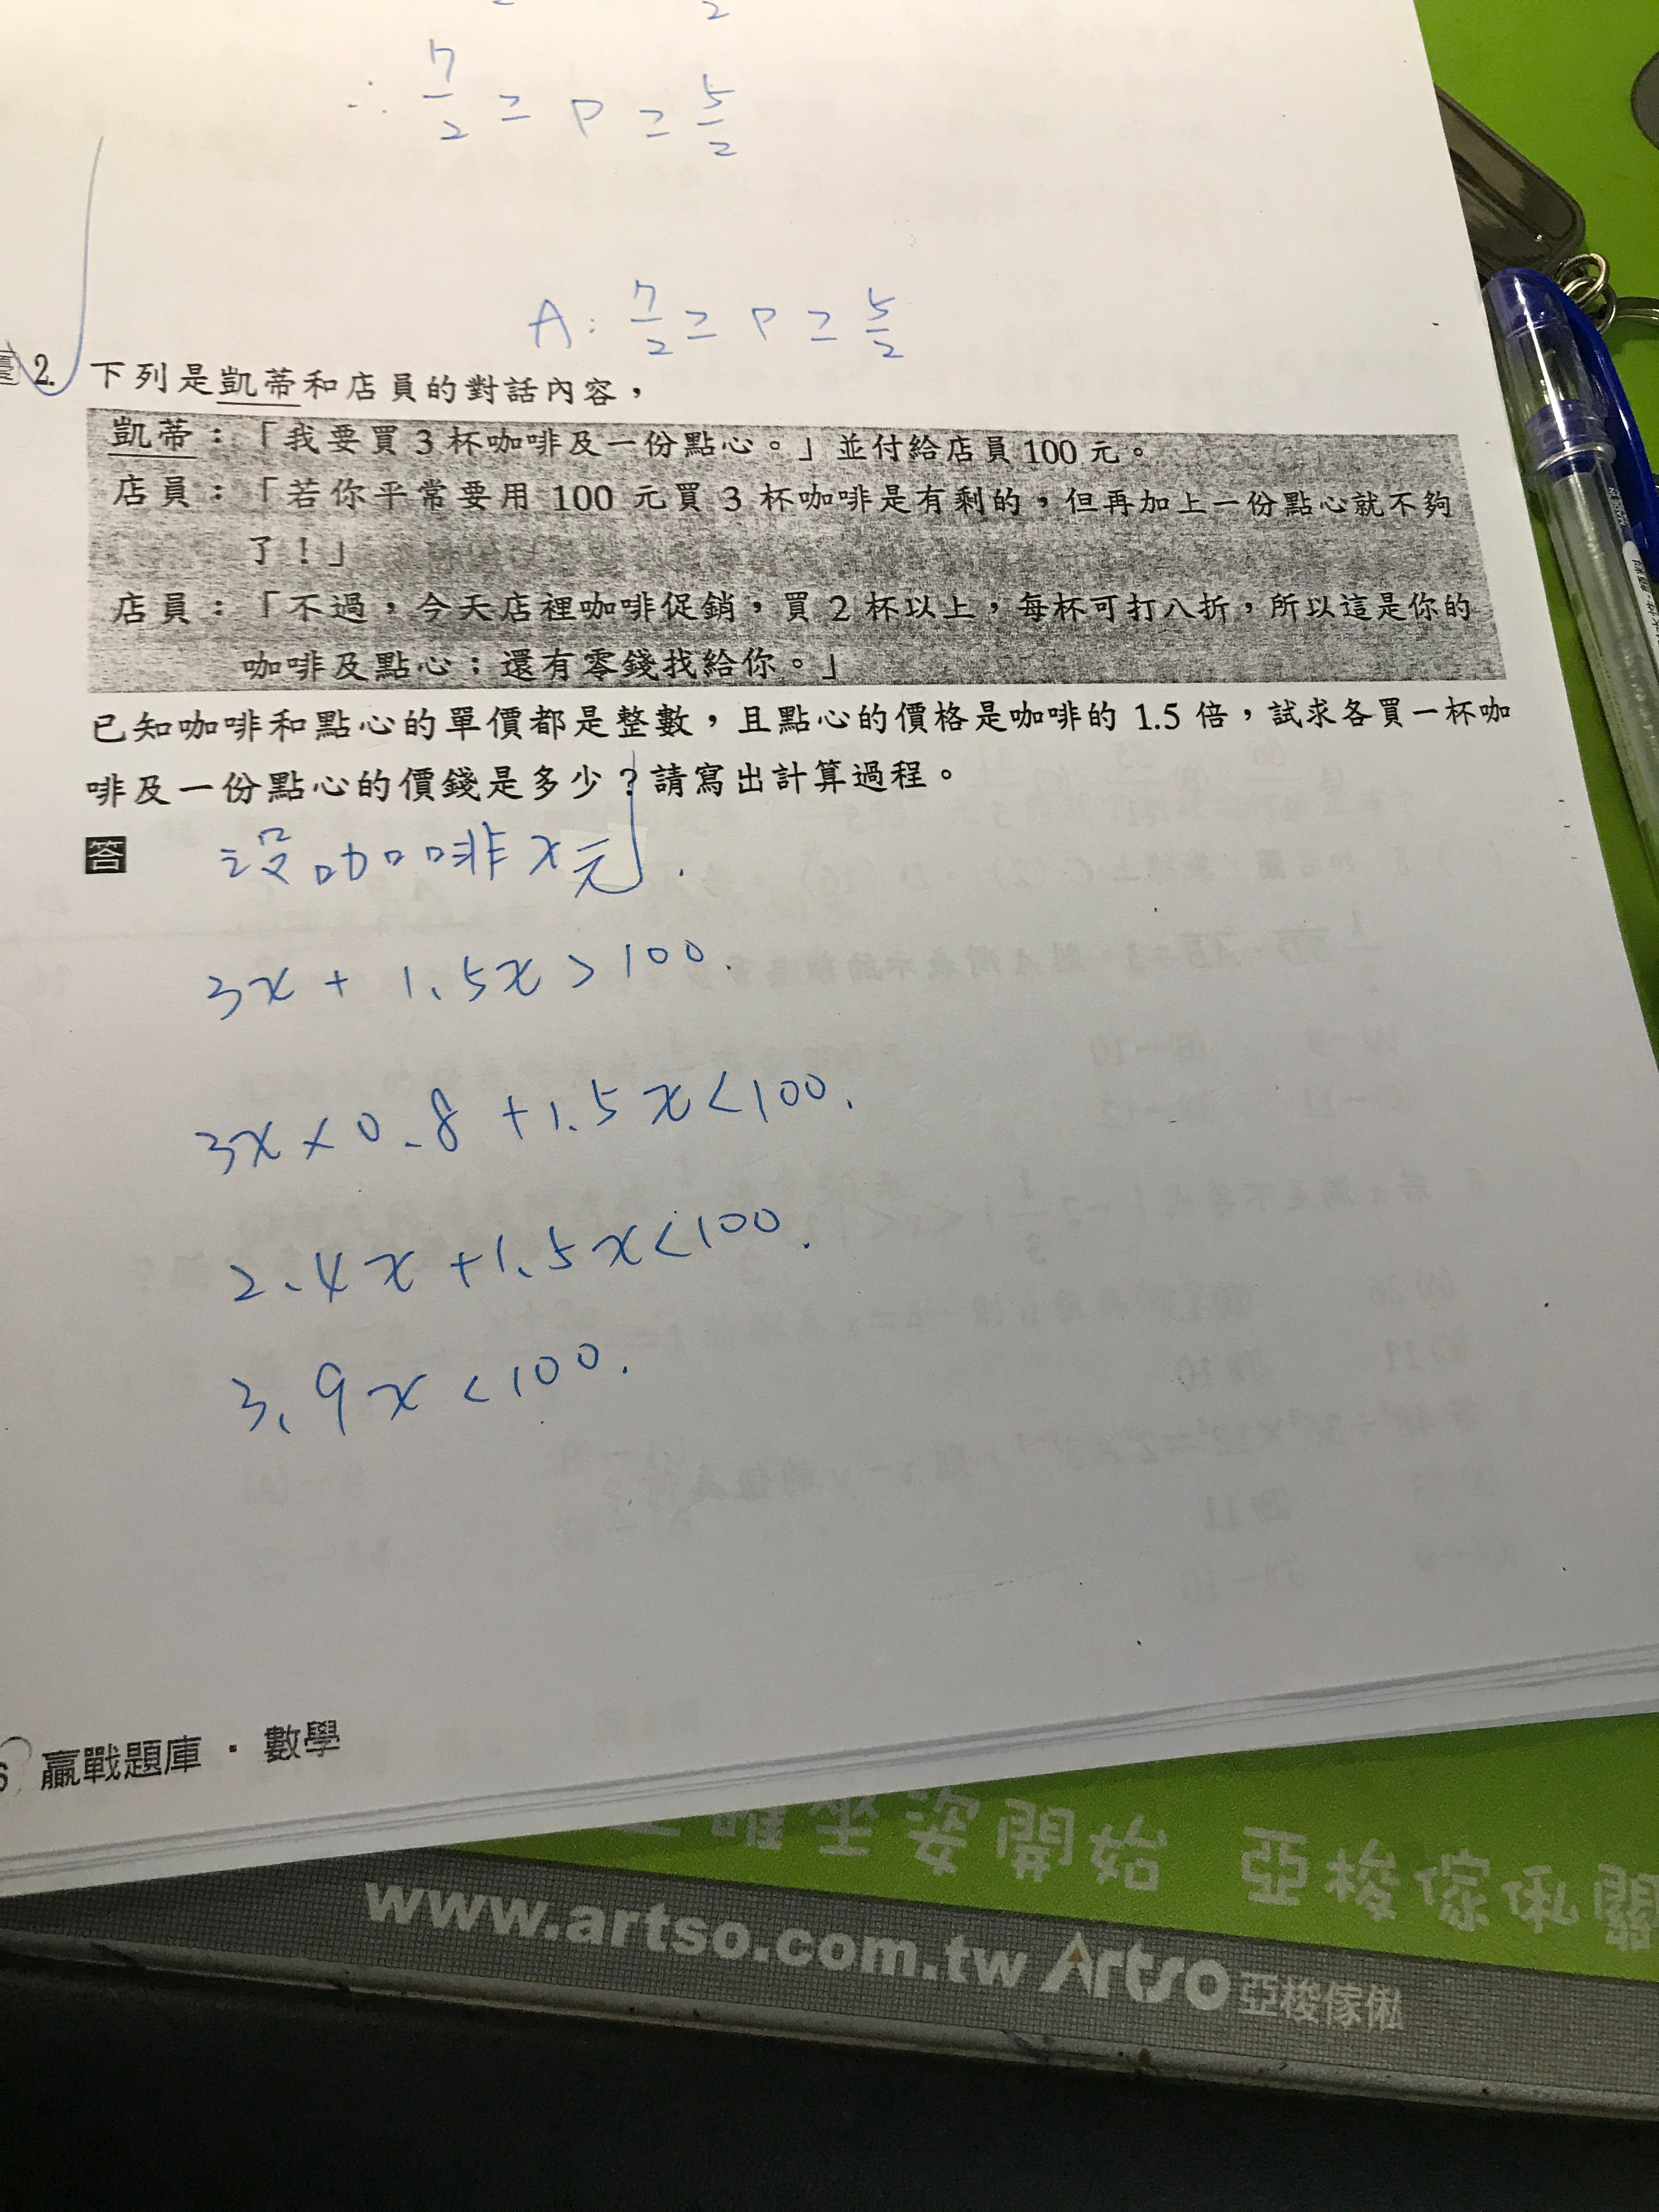 2
∴ 7/2 ≥ P ≥ 5/2
A: 7/2 ≥ P ≥ 5/2
2. 下列是凱蒂和店員的對話內容，
凱蒂：「我要買 3 杯咖啡及一份點心。」並付給店員 100 元。
店員：「若你平常要用 100 元買 3 杯咖啡是有剩的，但再加上一份點心就不夠
了！」
店員：「不過，今天店裡咖啡促銷，買 2 杯以上，每杯可打八折，所以這是你的
咖啡及點心；還有零錢找給你。」
已知咖啡和點心的單價都是整數，且點心的價格是咖啡的 1.5 倍，試求各買一杯咖
啡及一份點心的價錢是多少？請寫出計算過程。
答 設咖啡x元.
3x + 1.5x > 100.
3x × 0.8 + 1.5x < 100.
2.4x + 1.5x < 100.
3.9x < 100.
6 贏戰題庫・數學
確坐姿開始 亞梭傢俬關
www.artso.com.tw Artso 亞梭傢俬